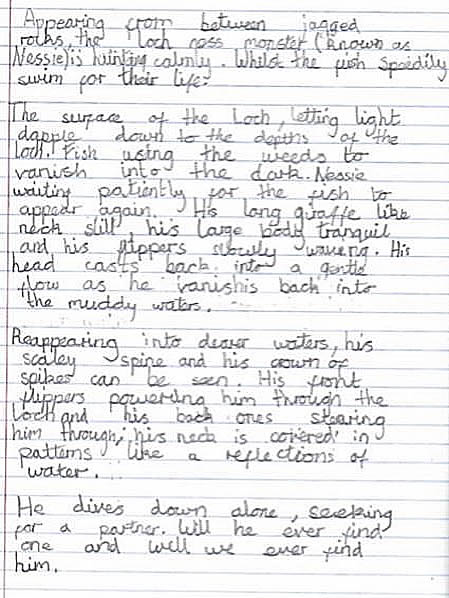 Appearing from between jagged
rocks, the Loch ness monster (known as
Nessie) is hunting calmly. Whilst the fish speedily
swim for their life.
The surface of the Loch, letting light
dapple down to the depths of the
loch. Fish using the weeds to
vanish into the dark. Nessie
waiting patiently for the fish to
appear again. His long giraffe like
neck still, his large body tranquil
and his flippers slowly waving. His
head casts back into a gentle
flow as he vanishis back into
the muddy waters.
Reappearing into clearer waters, his
scaley spine and his crown of
spikes can be seen. His front
flippers powering him through the
Loch and his back ones stearing
him through, his neck is covered in
patterns like a reflections of
water.
He dives down alone, seeking
for a partner. Will he ever find
one and will we ever find
him.